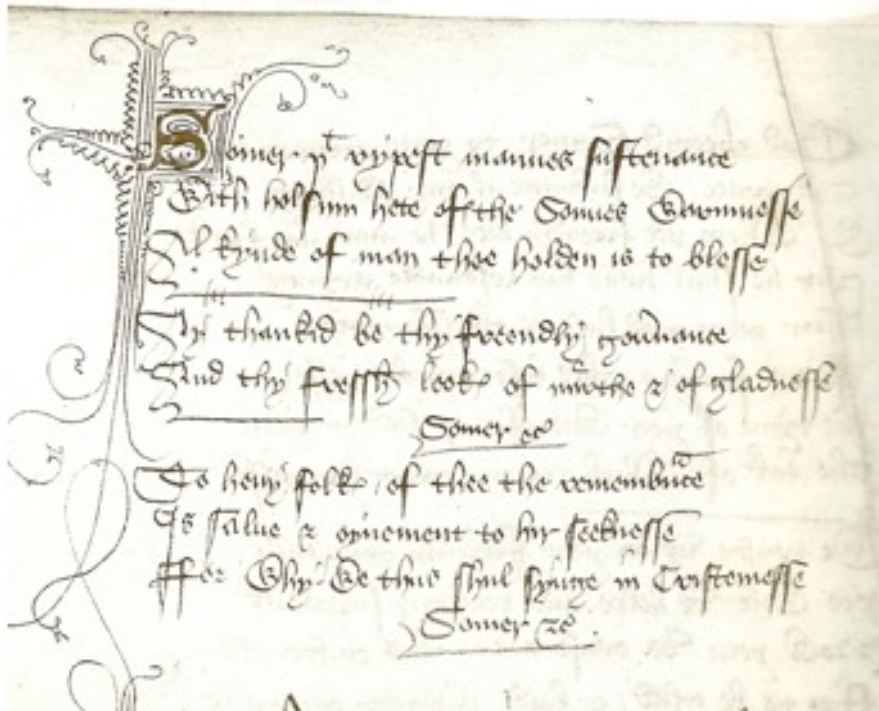 Somer þt rypest mannes sustenance
With holsum hete of the Sonnes Warmnesse
Al kynde of man thee holden is to blesse
Ay thankid be thy freendly gounance
And thy fressh look of mirthe & of gladnesse
Somer &c
To heuy folk of thee the remembrāce
Is salue & oynement to hir seeknesse
ffor Why We thus shul synge in Cristemesse
Somer &c